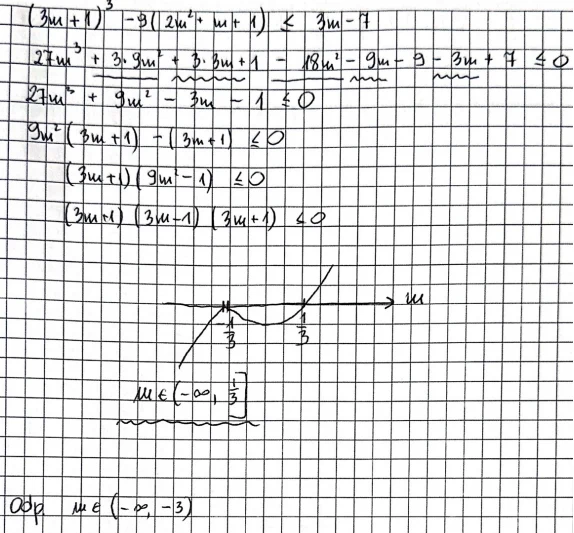 (3m+1)³ - 9(2m² + m + 1) ≤ 3m - 7
27m³ + 3·9m² + 3·3m + 1 - 18m² - 9m - 9 - 3m + 7 ≤ 0
27m³ + 9m² - 3m - 1 ≤ 0
9m² (3m+1) - (3m+1) ≤ 0
(3m+1)(9m² - 1) ≤ 0
(3m+1) (3m-1) (3m+1) ≤ 0
m
-1/3 1/3
m ∈ (-∞, 1/3]
Odp. m ∈ (-∞, -3)